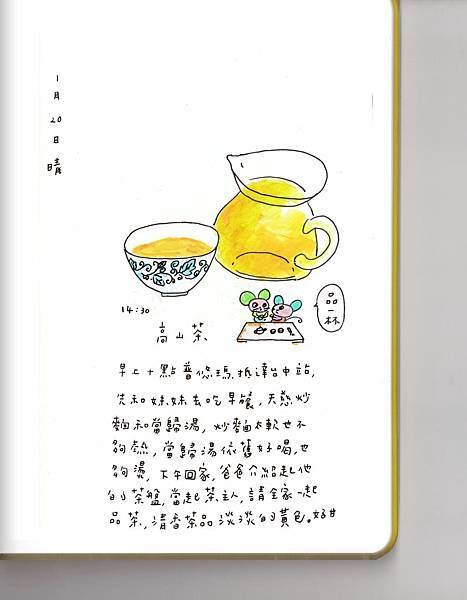 1月20日 晴
14:30
高山茶、
品一杯
早上十點普悠瑪抵達台中站,
先和妹妹去吃早餐,天慈炒
麵和當歸湯,炒麵太軟也不
夠熱,當歸湯依舊好喝,也
夠燙,下午回家,爸爸介紹起他
的茶盤,當起茶主人,請全家一起
品茶,清香茶品淡淡的黃色。好甘